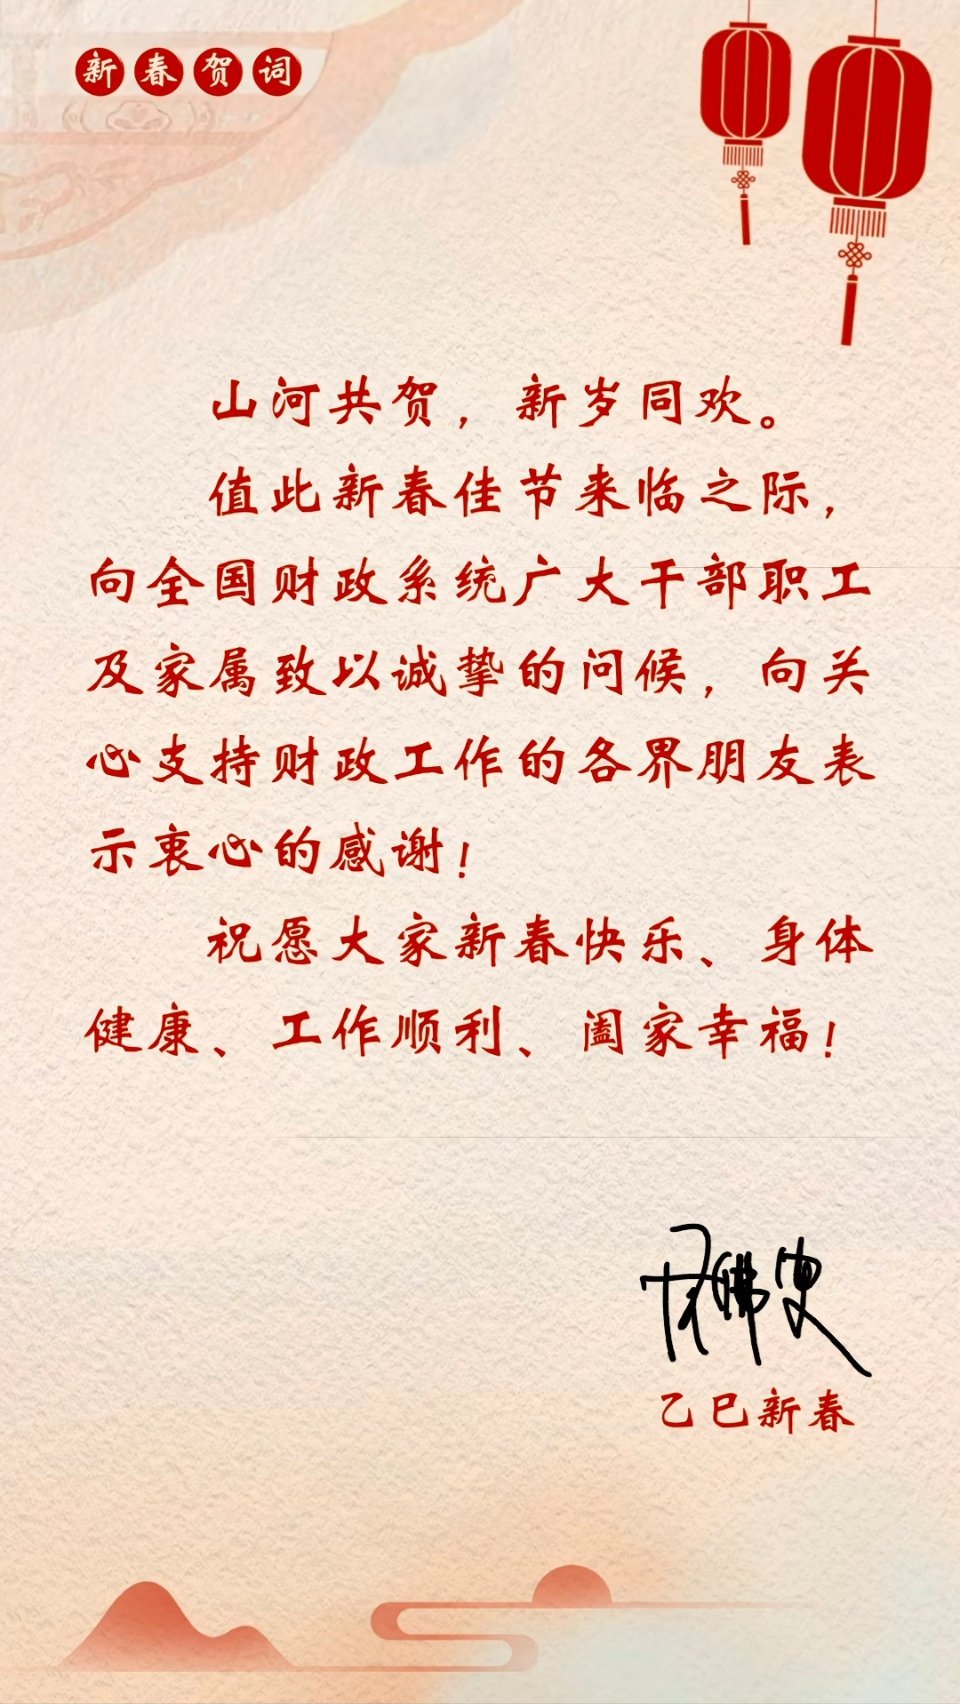 新春贺词
山河共贺，新岁同欢。
值此新春佳节来临之际，
向全国财政系统广大干部职工
及家属致以诚挚的问候，向关
心支持财政工作的各界朋友表
示衷心的感谢！
祝愿大家新春快乐、身体
健康、工作顺利、阖家幸福！
乙巳新春